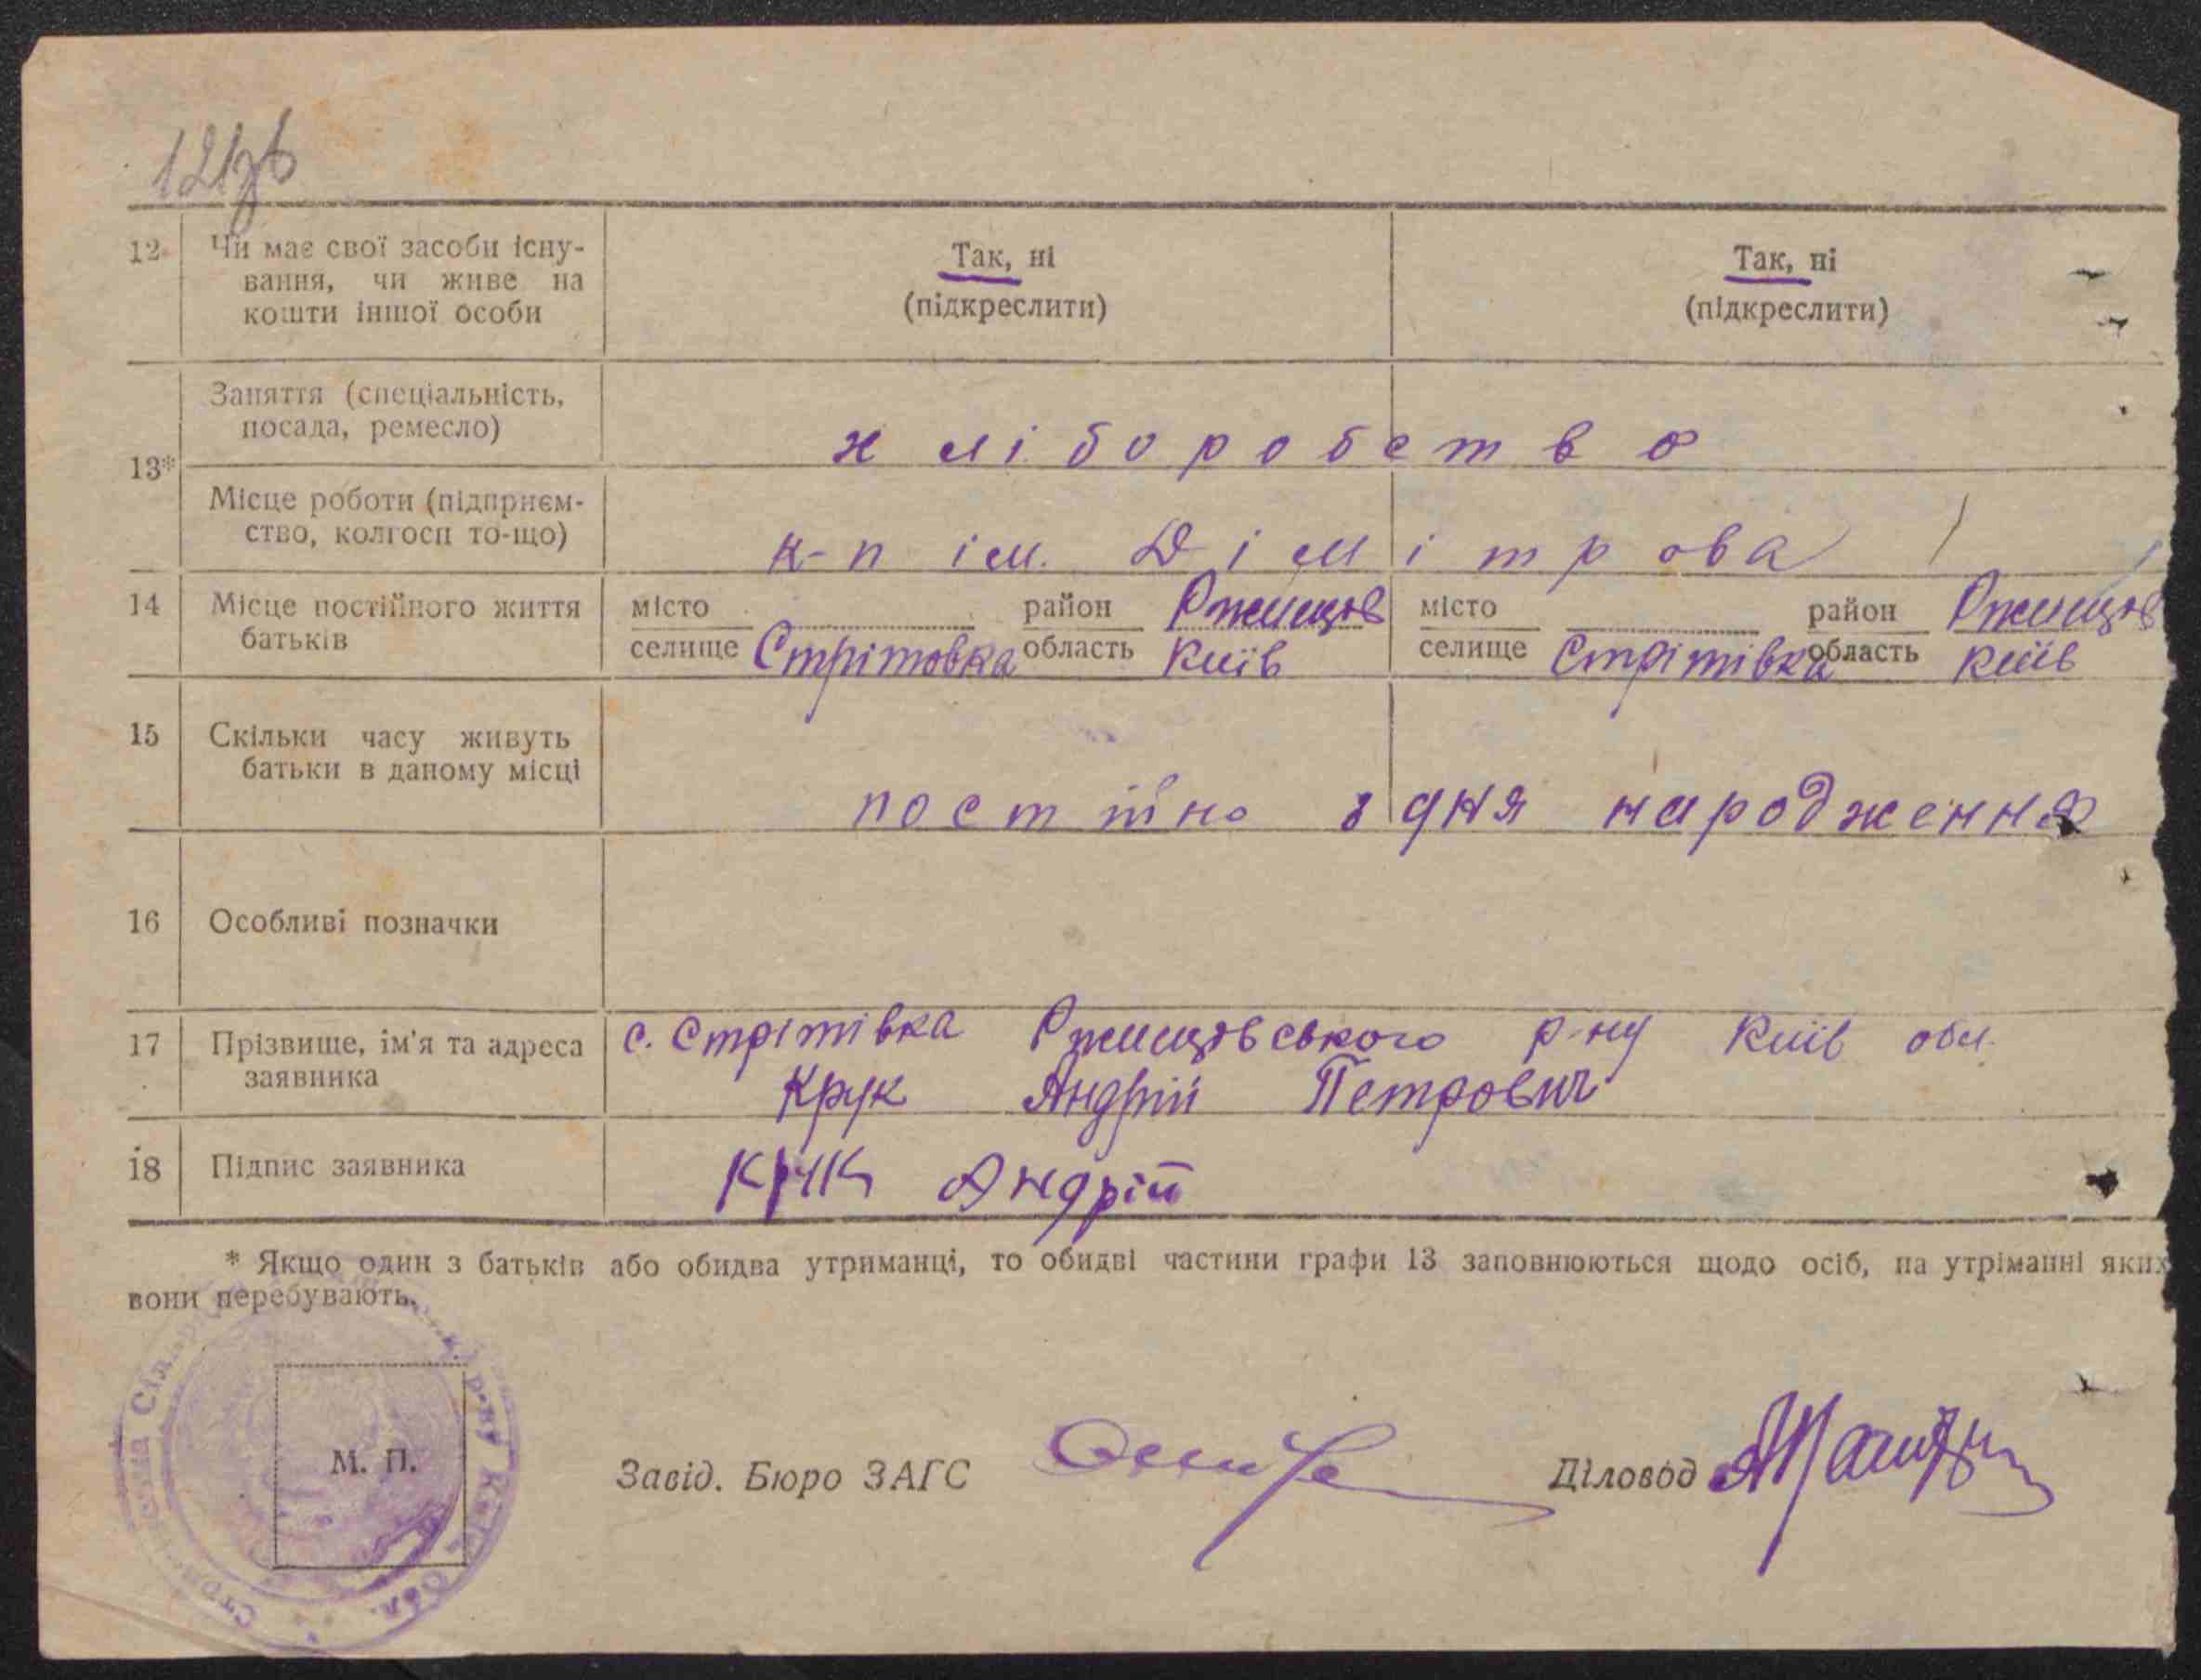 12 Чи має свої засоби існу- Так, ні Так, ні
вання, чи живе на (підкреслити) (підкреслити)
кошти іншої особи
Заняття (спеціальність,
посада, ремесло) хліборобство
13*
Місце роботи (підприєм-
ство, колгосп то-що) к-п ім. Дімітрова
14 Місце постійного життя місто район Ржищів місто район Ржищів
батьків селище Стрітовка область Київ селище Стрітівка область Київ
15 Скільки часу живуть
батьки в даному місці постійно з дня народження
16 Особливі позначки
17 Прізвище, ім'я та адреса с. Стрітівка Ржищівського р-ну Київ обл.
заявника Крук Андрій Петрович
18 Підпис заявника Крук Андрій
* Якщо один з батьків або обидва утриманці, то обидві частини графи 13 заповнюються щодо осіб, на утріманні яких
вони перебувають.
М. П.
Завід. Бюро ЗАГС Діловод